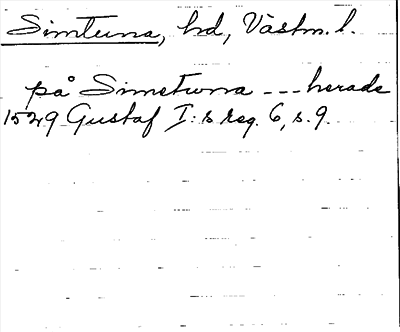 Simtuna, hd, Västm. l.
på Simetwna --- herade
1529 Gustaf I:s reg. 6, s. 9.